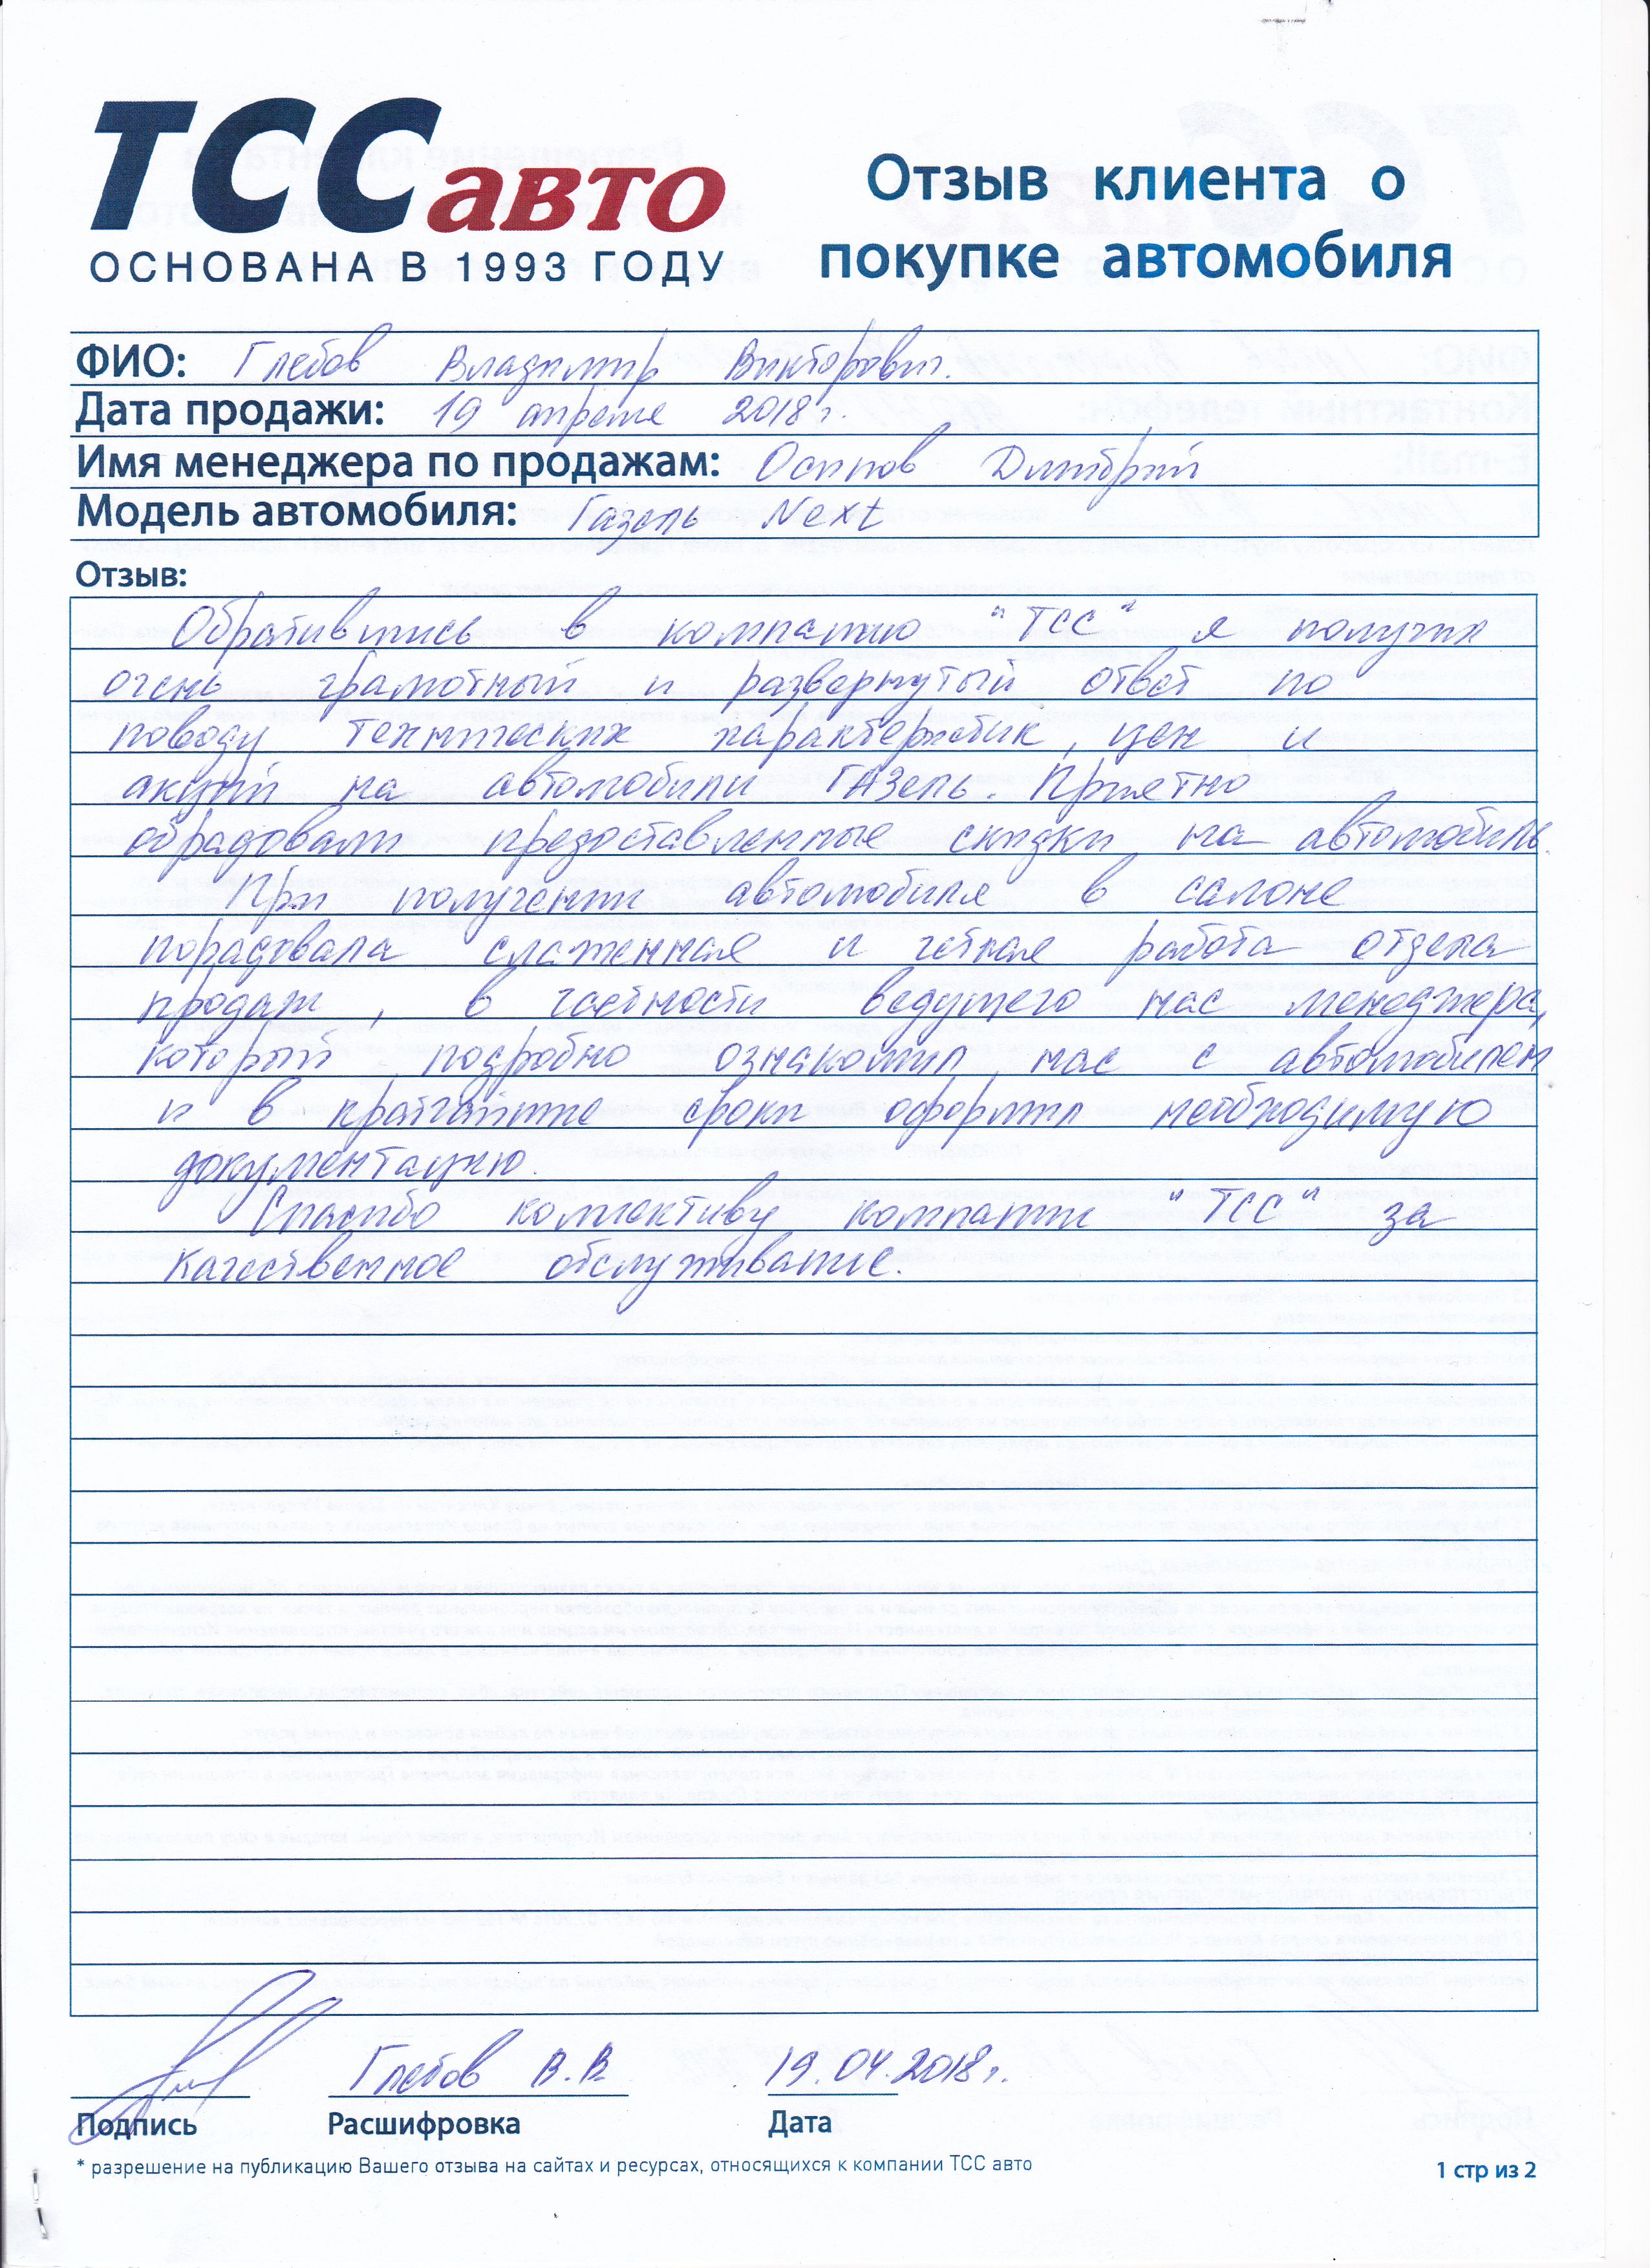 ТСС авто
ОСНОВАНА В 1993 ГОДУ
Отзыв клиента о
покупке автомобиля
ФИО: Глебов Владимир Викторович.
Дата продажи: 19 апреля 2018г.
Имя менеджера по продажам: Осипов Дмитрий
Модель автомобиля: Газель Next
Отзыв:
Обратившись в компанию "ТСС" я получил
очень грамотный и развернутый ответ по
поводу технических характеристик, цен и
акций на автомобили ГАЗель. Приятно
обрадовали предоставленные скидки на автомобиль.
При получении автомобиля в салоне
порадовала слаженная и чёткая работа отдела
продаж, в частности ведущего нас менеджера,
который подробно ознакомил нас с автомобилем
и в кратчайшие сроки оформил необходимую
документацию.
Спасибо коллективу компании "ТСС" за
качественное обслуживание.
Глебов В.В. 19.04.2018г.
Подпись Расшифровка Дата
* разрешение на публикацию Вашего отзыва на сайтах и ресурсах, относящихся к компании ТСС авто
1 стр из 2